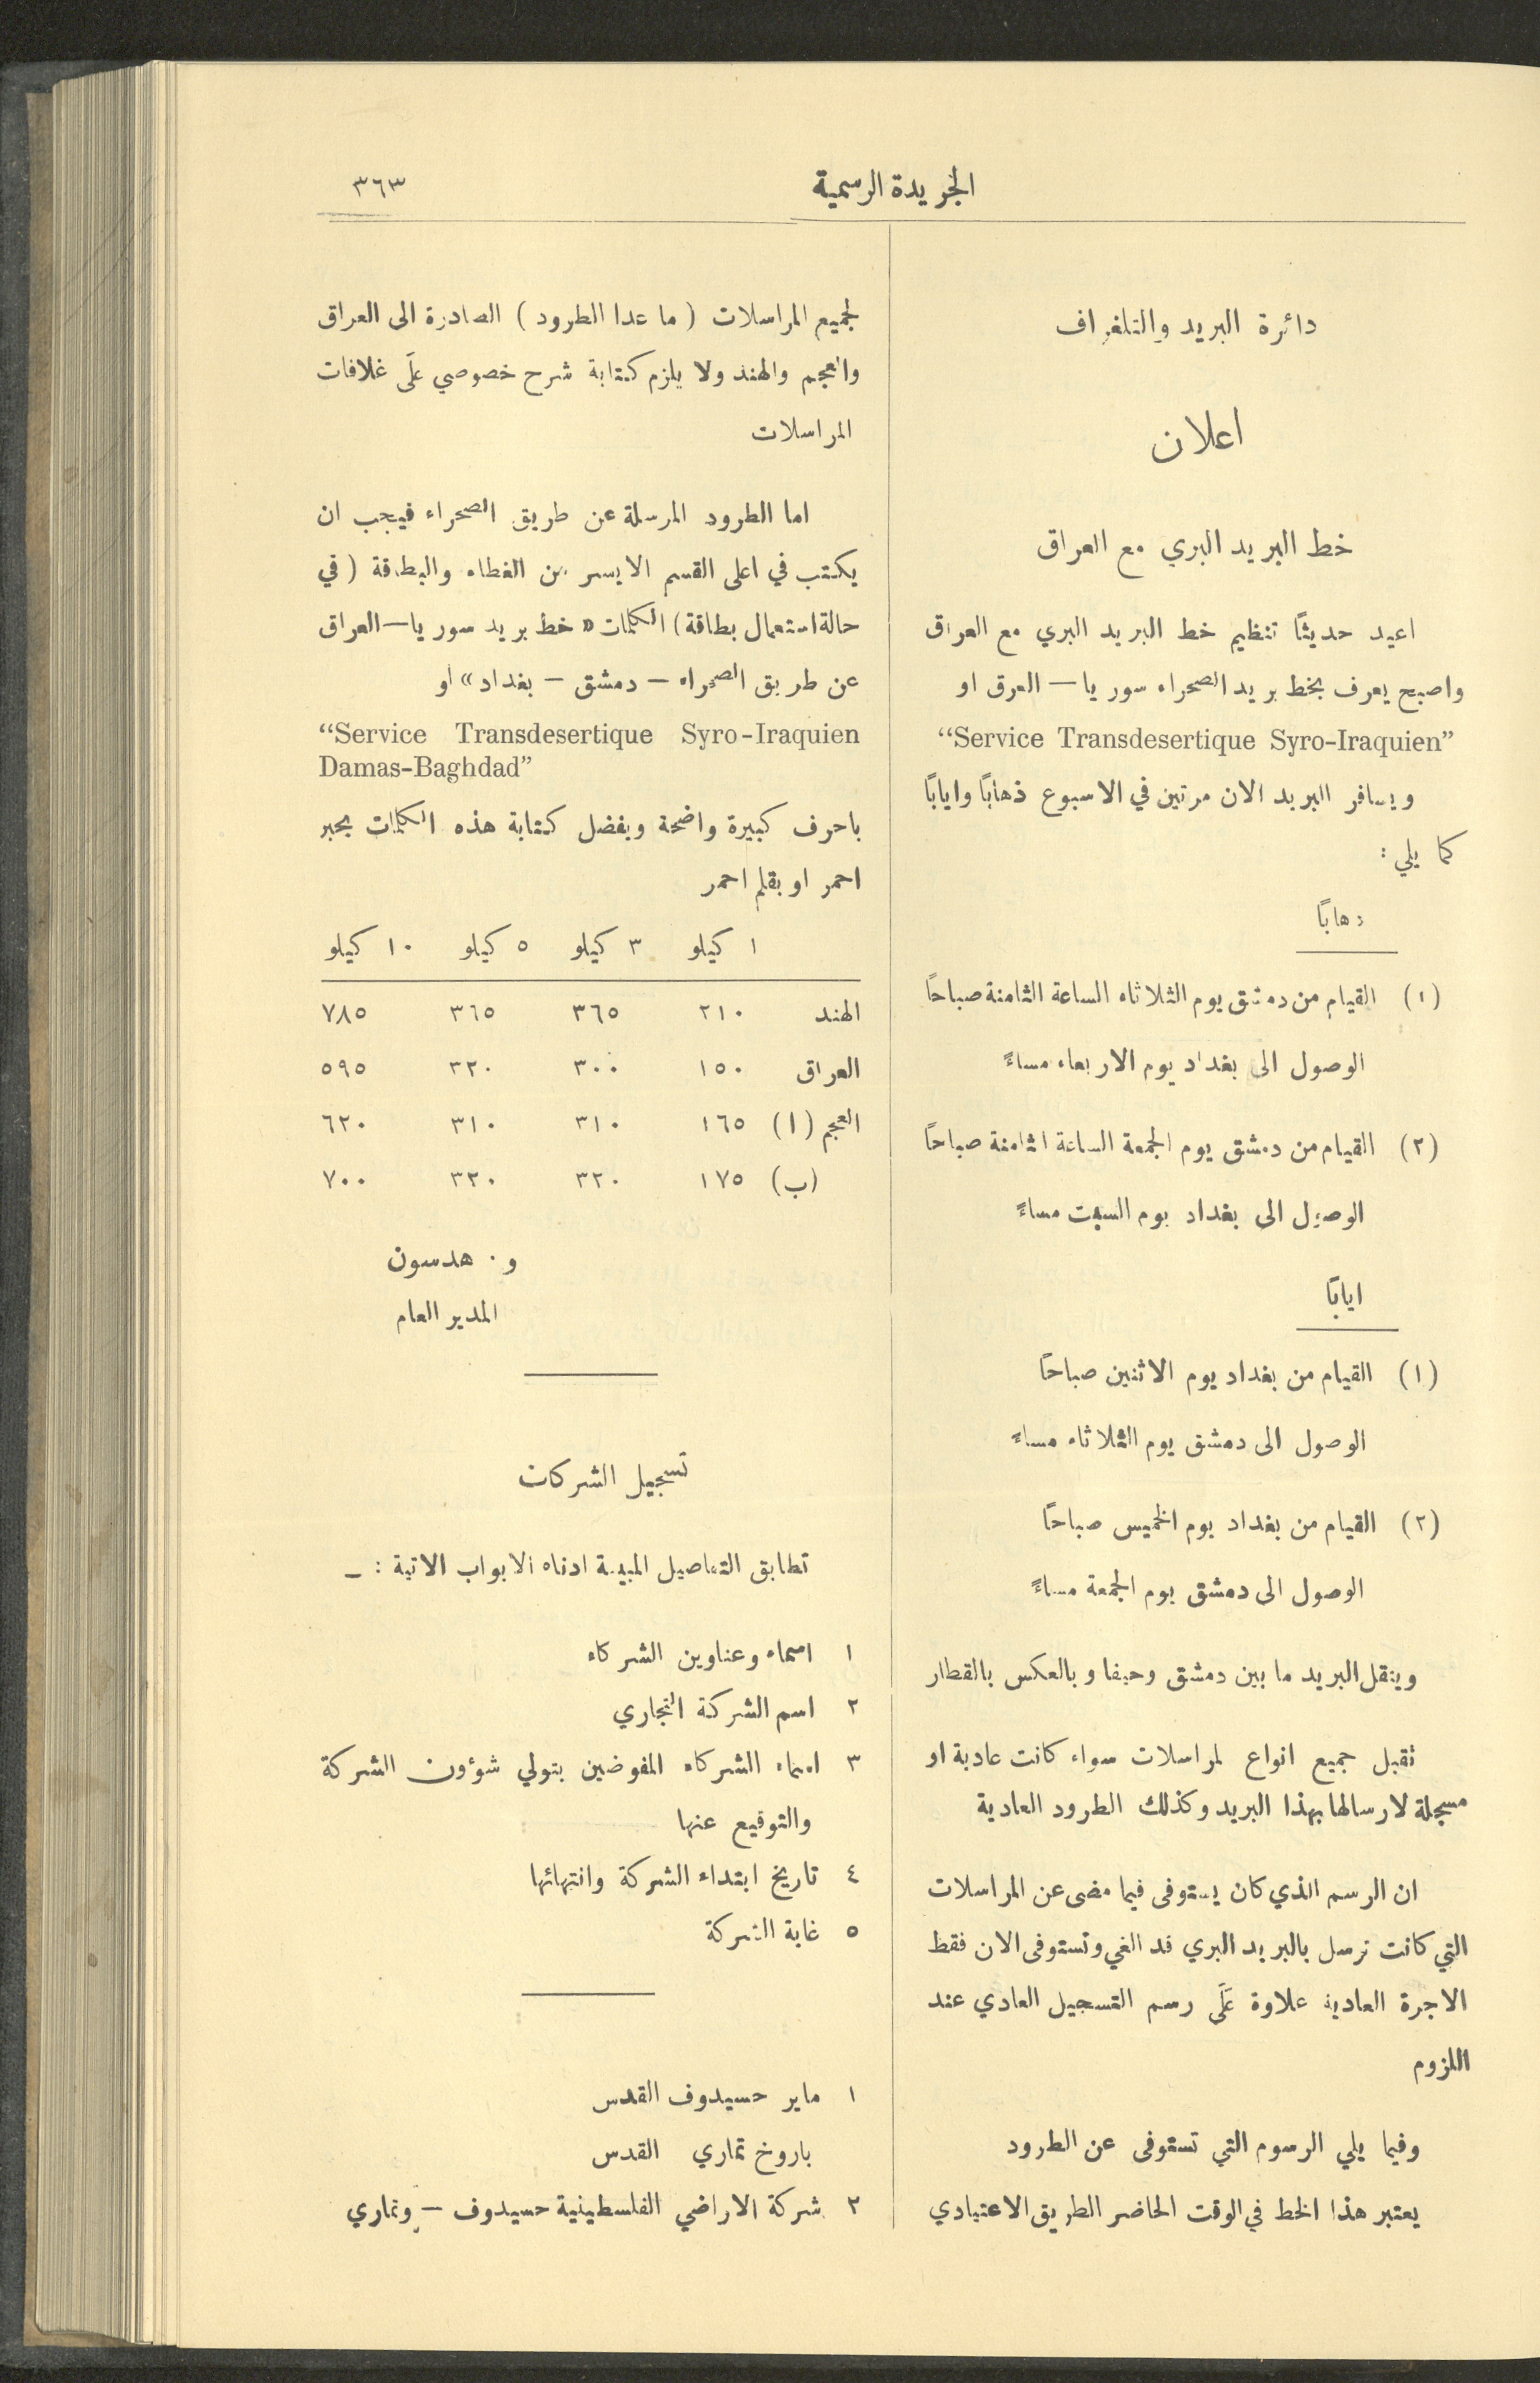 الجريدة الرسمية
٣٦٣
دائرة البريد والتلغراف
اعلان
خط البريد البري مع العراق
اعيد حديثًا تنظيم خط البريد البري مع العراق
واصبح يعرف بخط بريد الصحراء سوريا — العرق او
“Service Transdesertique Syro-Iraquien”
ويسافر البريد الان مرتين في الاسبوع ذهابًا وايابًا
كما يلي :
ذهابًا
(١) القيام من دمشق يوم الثلاثاء الساعة الثامنة صباحًا
الوصول الى بغداد يوم الاربعاء مساءً
(٢) القيام من دمشق يوم الجمعة الساعة الثامنة صباحًا
الوصول الى بغداد يوم السبت مساءً
ايابًا
(١) القيام من بغداد يوم الاثنين صباحًا
الوصول الى دمشق يوم الثلاثاء مساءً
(٢) القيام من بغداد يوم الخميس صباحًا
الوصول الى دمشق يوم الجمعة مساءً
وينقل البريد ما بين دمشق وحيفا وبالعكس بالقطار
تقبل جميع انواع لمراسلات سواء كانت عادية او
مسجلة لارسالها بهذا البريد وكذلك الطرود العادية
ان الرسم الذي كان يستوفى فيما مضى عن المراسلات
التي كانت ترسل بالبريد البري قد الغي وتستوفى الان فقط
الاجرة العادية علاوة عَلَى رسم التسجيل العادي عند
اللزوم
وفيما يلي الرسوم التي تستوفى عن الطرود
يعتبر هذا الخط في الوقت الحاضر الطريق الاعتيادي
لجميع المراسلات ( ما عدا الطرود ) الصادرة الى العراق
والعجم والهند ولا يلزم كتابة شرح خصوصي عَلَى غلافات
المراسلات
اما الطرود المرسلة عن طريق الصحراء فيجب ان
يكتب في اعلى القسم الايسر من الغطاء والبطاقة ( في
حالة استعمال بطاقة ) الكلمات « خط بريد سوريا — العراق
عن طريق الصحراء — دمشق — بغداد » او
“Service Transdesertique Syro-Iraquien
Damas-Baghdad”
باحرف كبيرة واضحة ويفضل كتابة هذه الكلمات بحبر
احمر او بقلم احمر
١ كيلو ٣ كيلو ٥ كيلو ١٠ كيلو
الهند ٢١٠ ٣٦٥ ٣٦٥ ٧٨٥
العراق ١٥٠ ٣٠٠ ٣٢٠ ٥٩٥
العجم (ا) ١٦٥ ٣١٠ ٣١٠ ٦٢٠
(ب) ١٧٥ ٣٢٠ ٣٢٠ ٧٠٠
و. هدسون
المدير العام
تسجيل الشركات
تطابق التفاصيل المبينة ادناه الابواب الاتية : —
١ اسماء وعناوين الشركاء
٢ اسم الشركة التجاري
٣ اسماء الشركاء المفوضين بتولي شؤون الشركة
والتوقيع عنها
٤ تاريخ ابتداء الشركة وانتهائها
٥ غاية الشركة
١ ماير حسيدوف القدس
باروخ تماري القدس
٢ شركة الاراضي الفلسطينية حسيدوف — وتماري